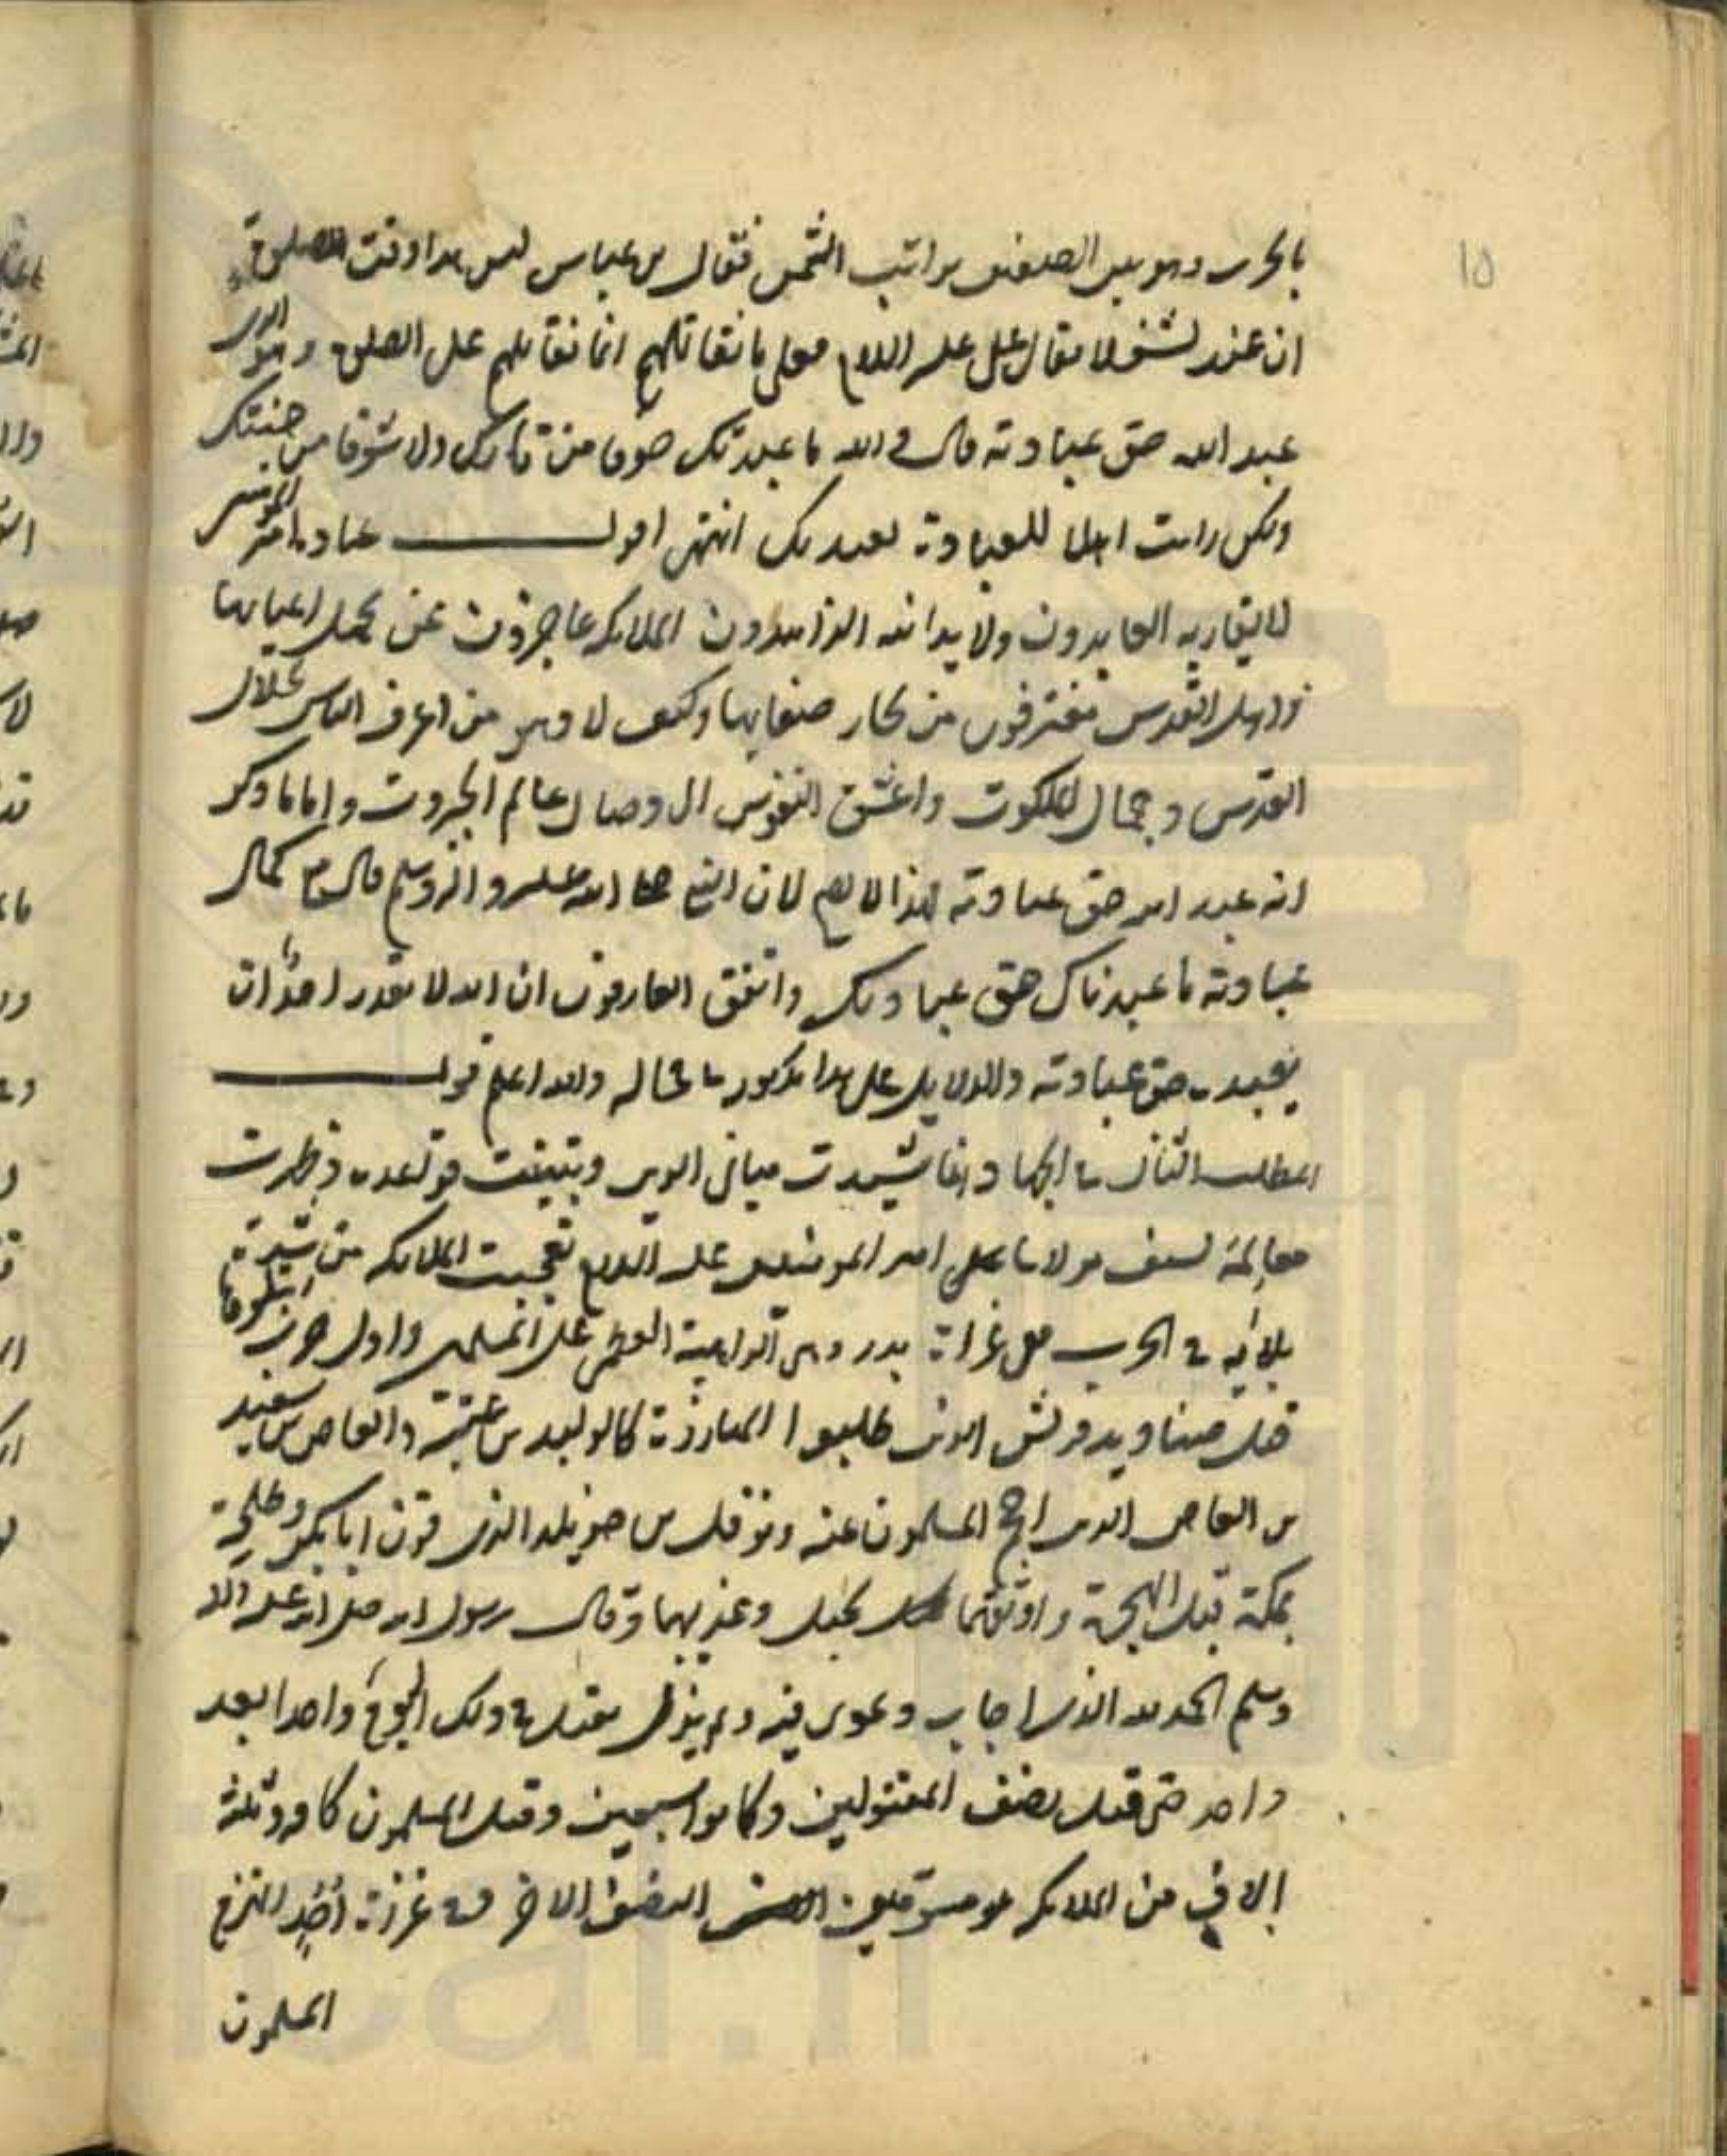 ١٥
بالحرب وهو بين الصفين يراقب الشمس فقال بن عباس ليس هذا وقت الصلوة
ان عندنا لشغلا فقال علي عليه السلام فعلى ما نقاتلهم انما نقاتلهم على الصلوة وهو الذي
عبد الله حق عبادته قال والله ما عبدتك خوفا من نارك ولا شوقا من جنتك
ولكن رايت اهلا للعبادة فعبدتك انتهى اقول عبادة امير المؤمنين
لا يقاربه العابدون ولا يدانيه الزاهدون الملائكة عاجزون عن تحمل اعبائها
واهل القدس مغترفون من بحار صفائها وكيف لا وهو من اعرف الناس بجلال
القدس وجمال الملكوت واعشق النفوس الى وصال عالم الجبروت واما ما ذكر
انه عبد الله حق عبادته هذا لا يصح لان النبي صلى الله عليه واله وسلم قال مع كمال
عبادته ما عبدناك حق عبادتك واتفق العارفون ان الله لا يقدر احد ان
يعبده حق عبادته والدلايل على هذا مذكور والله اعلم قوله
المطلب الثاني في الجهاد وانما تشيدت مباني الدين وتبينت قواعده وظهرت
معالمه بسيف مولانا علي امير المؤمنين عليه السلام تعجبت الملائكة من شدة
بلائه في الحرب ففي غزاة بدر وهي الداهية العظمى على المسلمين واول حرب ابتلوا بها
قتل صناديد قريش الذين طلبوا المبارزة كالوليد بن عتبة والعاص بن سعيد
بن العاص الذي احجم المسلمون عنه ونوفل بن خويلد الذي قرن ابا بكر وطلحة
بمكة قبل الهجرة واوثقهما بحبل وعذبهما وقال رسول الله صلى الله عليه واله
وسلم الحمد لله الذي اجاب دعوتي فيه ولم يزل يقتل في ذلك اليوم واحدا بعد
واحد حتى قتل نصف المقتولين وكانوا سبعين وقتل المسلمون كافة وثلثة
الاف من الملائكة مسومين النصف الاخر وفي غزوة احد انهزم
المسلمون